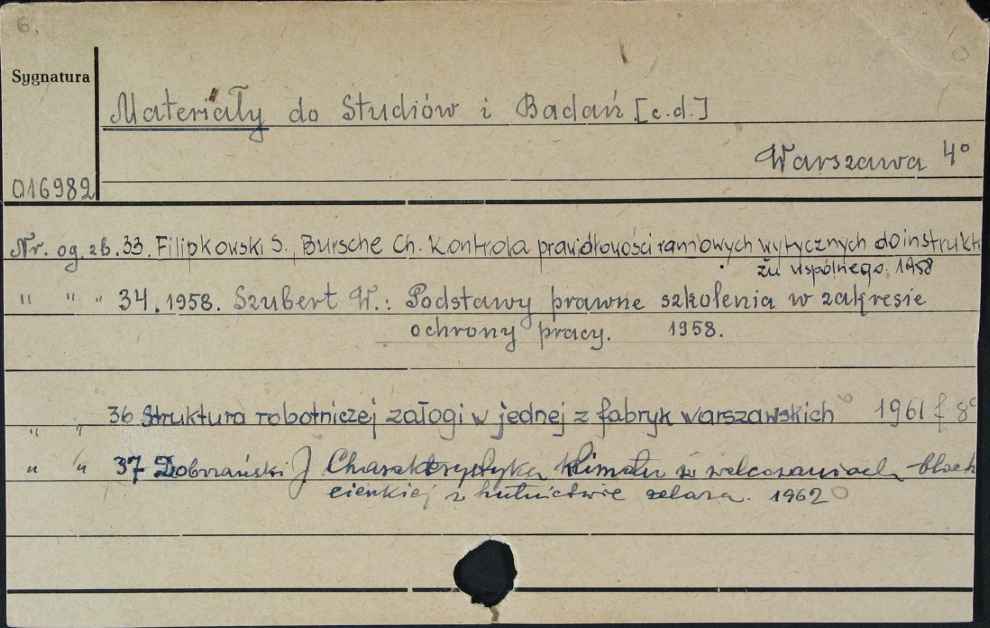 6.
Sygnatura
Materiały do Studiów i Badań [c.d.]
Warszawa 4°
016982
Nr. og. zb. 33. Filipkowski S., Bursche Ch. Kontrola prawidłowości ramowych wytycznych do instrukt
żu wspólnego, 1958
" " " 34. 1958. Szubert W.: Podstawy prawne szkolenia w zakresie
ochrony pracy. 1958.
" " 36 Struktura robotniczej załogi w jednej z fabryk warszawskich 1961 f 8°
" " 37 Dobrzański J Charakterystyka klimatu w walcowniach blach
cienkiej w hutnictwie żelaza. 1962